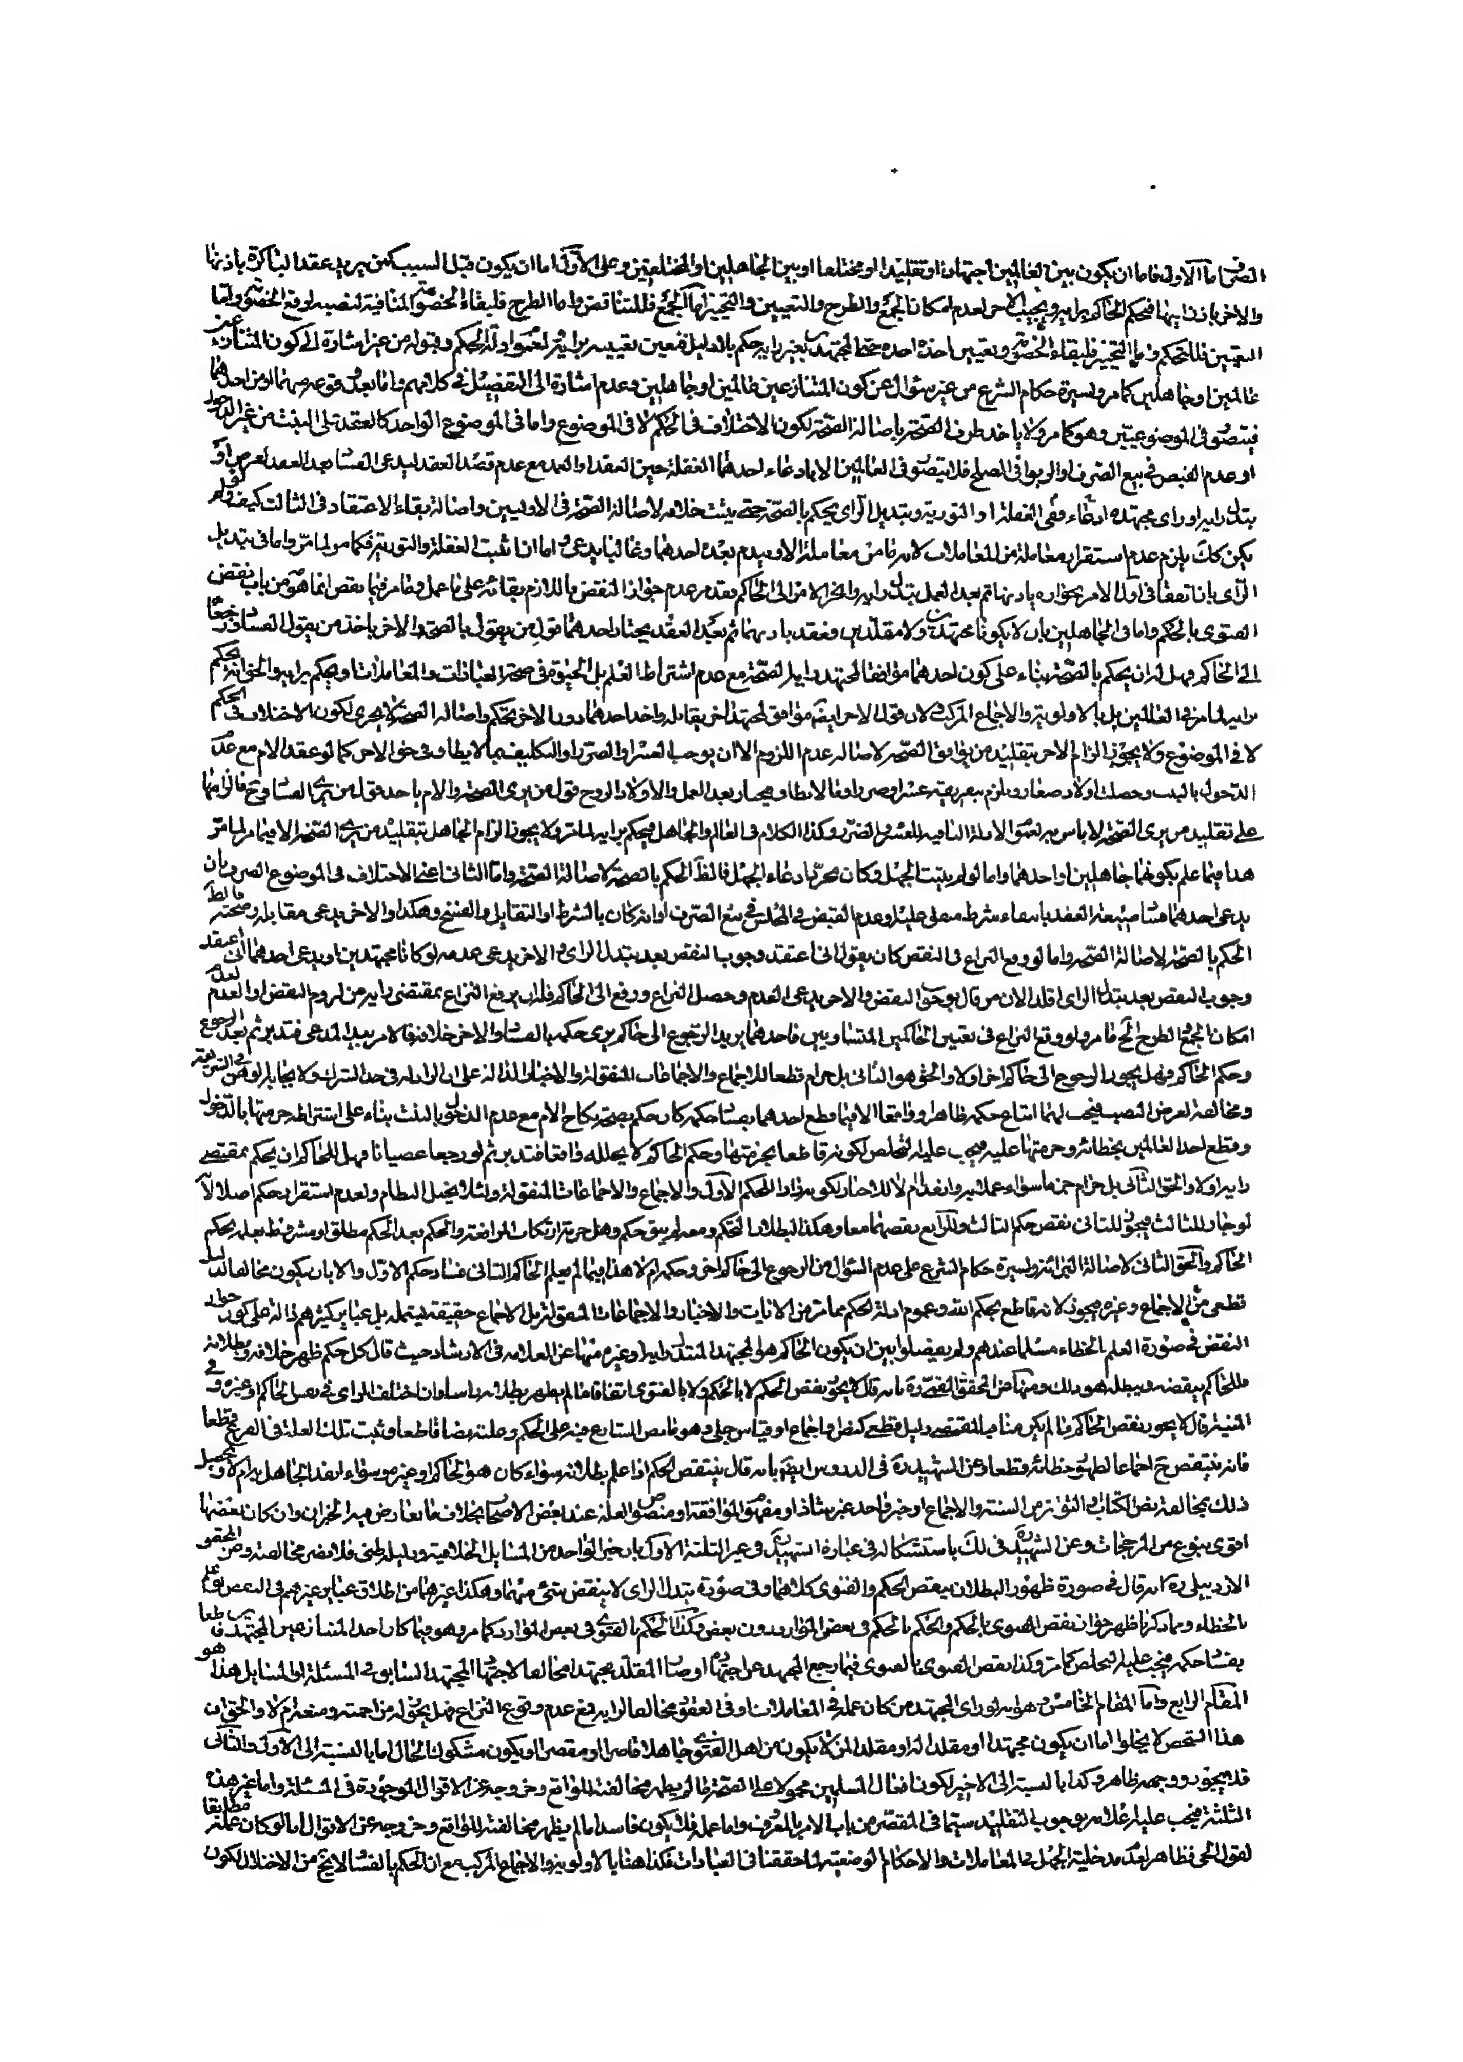 الصرف اما الاول فاما ان يكون بين العالمين اجتهادا او تقليدا او مختلفا او بين الجاهلين او المختلفين وعلى الاول اما ان يكون قبل السبب كمن يريد عقد الباكرة باذنها
والاخر باذن ابيها فيحكم الحاكم برايه ويجيب الاخر لعدم امكان الجمع والطرح والتعيين والتخيير اما الجمع فللتناقض واما الطرح فلبقاء الخصومة المنافية لنصبه لرفع الخصومة واما
التعيين فللتحكم واما التخيير فلبقاء الخصومة وتعيين احده احدهما المجتهد بغير رايه حكم بلا دليل فتعين تعيينه برايه لعموم ادلة الحكم وقوله من غير اشارة الى كون المتنازعين
عالمين او جاهلين كما مر ولسيرة حكام الشرع من غير سؤال عن كون المتنازعين عالمين او جاهلين وعدم اشارة الى التفصيل في كلامهم واما بعد وقوعه منهما او من احدهما
فيتصور في الموضوعيتين وهو كما مر ولا ياخذ طرف الصحة باصالة الصحة لكون الاختلاف في الحكم لا في الموضوع واما في الموضوع الواحد كالعقد على البنت من غير الدخول
او عدم القبض في بيع الصرف او الربوا في الصلح فلا يتصور في العالمين الا بادعاء احدهما الغفلة حين العقد او العمد مع عدم قصد العقد ليدعى الفساد بعد العقد لغرض او
تبدل رايه او راى مجتهده ادعاء ففى الغفلة او التورية وتبديل الراى يحكم بالصحة حتى يثبت خلافه لاصالة الصحة في الاوليين واصالة بقاء الاعتقاد في الثالث كيف ولو لم
يكن كك يلزم عدم استقرار معاملة من المعاملات لانه ما من معاملة الا ويندم بعده احدهما وغالبا يدعى اما اذا ثبت الغفلة والتورية فكما مر لما مر واما في تبديل
الراى بان اتفقا في اول الامر بجوازه باذنها ثم بعد العمل تبدل رايه وانجر الامر الى الحاكم فقد مر عدم جواز النقض بل اللازم بقائه على ما عمل وما مر فيما نقض انما هو من باب نقض
الفتوى بالحكم واما في الجاهلين بان لا يكونا مجتهدين ولا مقلدين فعقد باذنها ثم بعد العقد يختار احدهما قول من يقول بالصحة والاخر ياخذ من يقول بالفساد ورجعا
الى الحاكم فهل له ان يحكم بالصحة بناء على كون احدهما موافقا لمجتهد دليله الصحة مع عدم اشتراط العلم بل الحيوة في صحة العبادات والمعاملات ويحكم برايه والحق انه يحكم
برايه لما مر في العالمين بل بالاولوية والاجماع المركب ولان قول الاخر ايضا موافق لمجتهد اخر يقابله واخذ احدهما دون الاخر تحكم واصالة الصحة لا يجرى لكون الاختلاف في الحكم
لا في الموضوع ولا يجوز الزام الاخر بتقليد من يوافق الصحة لاصالة عدم اللزوم الا ان يوجب العسر او الضرر او التكليف بما لا يطاق في حق الاخر كما لو عقد الام مع عدم
الدخول بالبنت وحصلت اولاد صغار ويلزم بتفريقه عسر او ضرر او ما لا يطاق ويختار بعد العمل والاولاد الزوج قول من يرى الصحة والام ياخذ قول من يرى الفساد فح فالزامها
على تقليد من يرى الصحة لا باس به لعموم الادلة النافية للعسر والضرر وكذا الكلام في العالم والجاهل فيحكم برايه لما مر ولا يجوز الزام الجاهل بتقليد من يرى الصحة الا فيما مر لما مر
هذا فيما علم بكونهما جاهلين او احدهما واما لو لم يثبت الجهل وكان مجرد ادعاء الجهل فالظ الحكم بالصحة لاصالة الصحة واما الثاني اعنى الاختلاف في الموضوع الصرف بان
يدعى احدهما فساد صيغة العقد بانتفاء شرط متفق عليه او عدم القبض في المجلس في بيع الصرف او انه كان بالشرط او التقايل والفسخ وهكذا والاخر يدعى مقابله وصحته فالظ
الحكم بالصحة لاصالة الصحة واما لو وقع النزاع في النقض كان يقول انى اعتقد وجوب النقض بعد تبدل الراى والاخر يدعى عدمه لو كانا مجتهدين او يدعى احدهما انى اعتقد
وجوب النقض بعد تبدل الراى اقلد الان من قال بوجوب النقض والاخر يدعى العدم وحصل النزاع ورفع الى الحاكم فله ان يرفع النزاع بمقتضى رايه من لزوم النقض او العدم لعدم
امكان الجمع والطرح الخ كما مر ولو وقع النزاع في تعيين الحاكمين المتساويين فاحدهما يريد الرجوع الى حاكم يرى حكمه بالفساد والاخر خلافه فالامر بيد المدعى فتدبر ثم بعد الرجوع
وحكم الحاكم فهل يجوز الرجوع الى حاكم اخر او لا والحق هو الثانى بل حرام قطعا للاجماع والاجماعات المنقولة والاخبار الدالة على ان الراد له في حد الشرك ولا يجابه الوهن في الشريعة
ومخالفة لغرض النصب فيجب لهما اتباع حكمه ظاهرا وواقعا الا فيما قطع احدهما بفساد حكمه كان حكم بصحة نكاح الام مع عدم الدخول بالبنت بناء على اشتراط حرمتها بالدخول
وقطع احد العالمين بخطائه وحرمتها عليه فيجب عليه التخلص لكونه قاطعا بحرمتها وحكم الحاكم لا يحلله واقعا فتدبر ثم لو رجعا عصيانا فهل للحاكم ان يحكم بمقتضى
رايه او لا والحق الثانى بل حرام جزما سواء عملا به وانعدام لا للاخبار لكونه رادا للحكم الاول والاجماع والاجماعات المنقولة ولئلا يختل النظام ولعدم استقرار حكم اصلا لانه
لو جاز للثالث فيجوز للثانى نقض حكم الثالث وللرابع نقضهما معا وهكذا البطلان التحكم ومعه لم يبق حكم وهل حرمة ارتكاب المرافعة والحكم بعد الحكم مطلق او مشروط بعلمه بحكم
الحاكم والحق الثانى لاصالة البرائة ولسيرة حكام الشرع على عدم السؤال من الرجوع الى حاكم اخر وحكمه ام لا هذا فيما لم يعلم الحاكم الثانى فساد حكم الاول والا بان يكون مخالفا لدليل
قطعى من الاجماع وغيره فيجوز لانه قاطع بحكم الله وعموم ادلة الحكم مما مر من الايات والاخبار والاجماعات المنقولة بل الاجماع حقيقة يشمله بل عباير كثير هم دالة على كون جواز
النقض في صورة العلم بالخطاء مسلما عندهم ولم يفصلوا بين ان يكون الحاكم هو المجتهد المتبدل رايه او غيره منها عن العلامه في الارشاد حيث قال كل حكم ظهر خلافه وبطلانه
فللحاكم ينقضه ويبطله هو ذلك ومنها عن المحقق القمى ره انه قال لا يجوز نقض الحكم لا بالحكم ولا بالفتوى اتفاقا ما لم يظهر بطلانه راسا وان اختلف الراى في نفس الحاكم او غيره وفى
المنية قال لا يجوز نقض الحاكم ما لم يكن منافيا لمقتضى دليل قطعى كنص او اجماع او قياس جلى وهو ما نص الشارع فيه على الحكم وعلته نصا قاطعا وثبت تلك العلة في الفرع قطعا
فانه ينتقض ح اجماعا لظهور خطائه قطعا وعن الشهيد ره في الدروس ايضا بانه قال ينتقض الحكم اذا علم بطلانه سواء كان هو الحاكم او غيره وسواء انفذ الجاهل به ام لا ويحصل
ذلك بمخالفة نص الكتاب او المتواتر من السنة والاجماع او خبر واحد غير شاذ او مفهوم الموافقة او منصوص العلة عند بعض الاصحاب بخلاف ما تعارض فيه الخبران وان كان بعضها
اقوى بنوع من المرجحات وعن الشهيد ره في ذلك باستشكاله في عبارة الشهيد ره في غير الثلثة الاول بان خبر الواحد من المسايل الخلافية ودليله ظنى فلا تضر مخالفته وعن المحقق
الاردبيلى ره انه قال في صورة ظهور البطلان ينقض الحكم والفتوى كلاهما وفى صورة تبدل الراى لا ينقض شئ منهما وهكذا غيرهما من اطلاق عباير غيرهم في النقض لو علم
بالخطاء ومما ذكرنا ظهر جواز نقض الفتوى بالحكم والحكم بالحكم في بعض الموارد دون بعض وكذا الحكم بالفتوى في بعض الموارد كما مر وهو فيما كان احد المتنازعين المجتهد قاطعا
بفساد حكمه فيجب عليه التخلص كما مر وكذا نقض الفتوى بالفتوى فيما رجع المجتهد عن اجتهاده او صار المقلد مجتهدا مخالفا لاجتهاد المجتهد السابق في المسئلة او المسايل هذا هو
المقام الرابع واما المقام الخامس وهو انه لو راى المجتهد من كان عمله في المعاملات او في العقود مخالفا لرايه مع عدم وقوع النزاع فهل يجوز له مزاحمته ومنعه ام لا والحق ان
هذا الشخص لا يخلوا اما ان يكون مجتهدا او مقلدا له او مقلدا لمن لا يكون من اهل الفتوى او جاهلا قاصرا او مقصرا او يكون مشكوك الحال اما بالنسبة الى الاول والثانى
فلا يجوز ووجهه ظاهر وكذا بالنسبة الى الاخير لكون افعال المسلمين محمولا على الصحة ما لم يظهر مخالفة للواقع وخروجه عن الاقوال الموجودة في المسئلة واما غير هذه
الثلثة فيجب عليه اعلامه بوجوب التقليد سيما في المقصر من باب الامر بالمعروف واما عمله فلا يكون فاسدا ما لم يظهر مخالفته للواقع وخروجه عن الاقوال اما لو كان عمله مطابقا
لقول الحى فظاهر لعدم مدخلية الجهل في المعاملات والاحكام الوضعية لما حققنا في العبادات فكذا هنا بالاولوية والاجماع المركب مع ان الحكم بالفساد لا يخ من الاختلال لكون